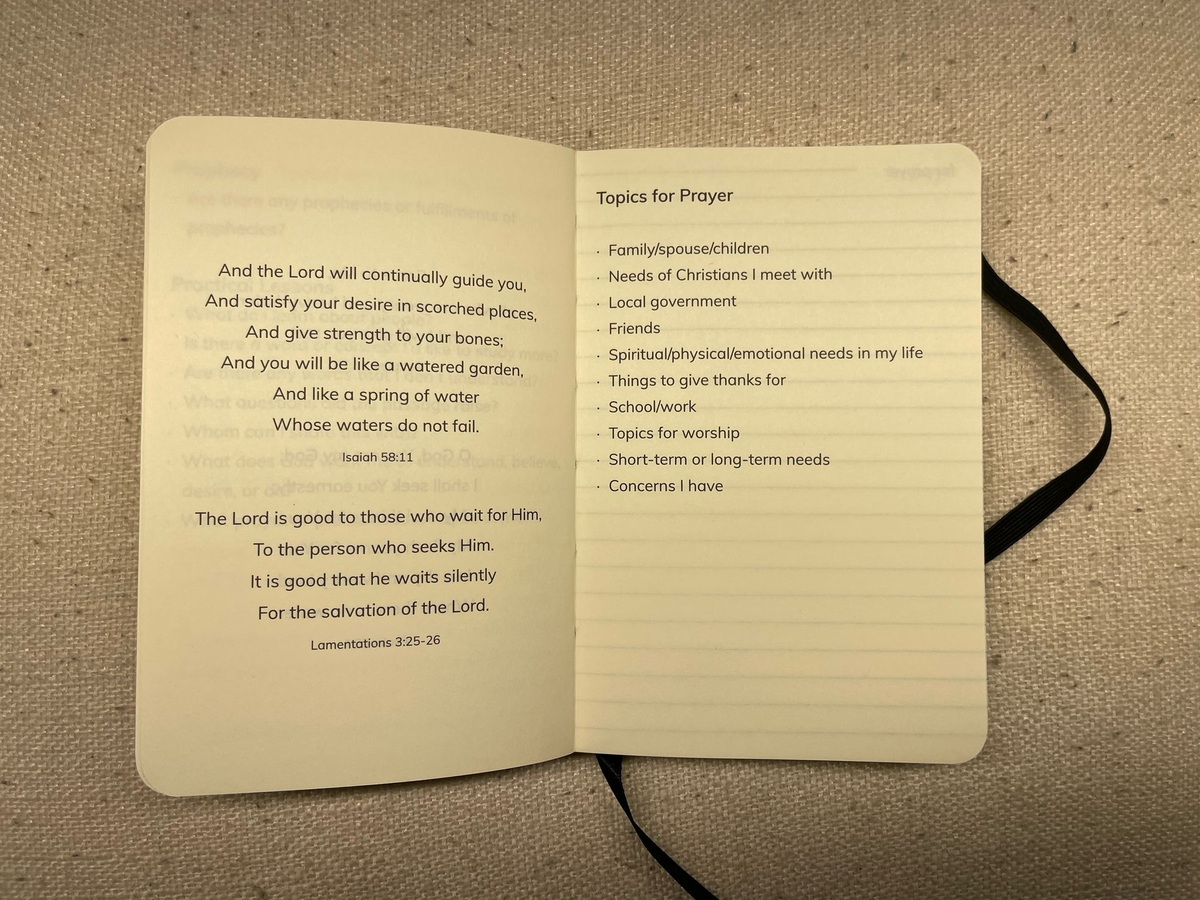 And the Lord will continually guide you,
And satisfy your desire in scorched places,
And give strength to your bones;
And you will be like a watered garden,
And like a spring of water
Whose waters do not fail.
Isaiah 58:11
The Lord is good to those who wait for Him,
To the person who seeks Him.
It is good that he waits silently
For the salvation of the Lord.
Lamentations 3:25-26
Topics for Prayer
· Family/spouse/children
· Needs of Christians I meet with
· Local government
· Friends
· Spiritual/physical/emotional needs in my life
· Things to give thanks for
· School/work
· Topics for worship
· Short-term or long-term needs
· Concerns I have